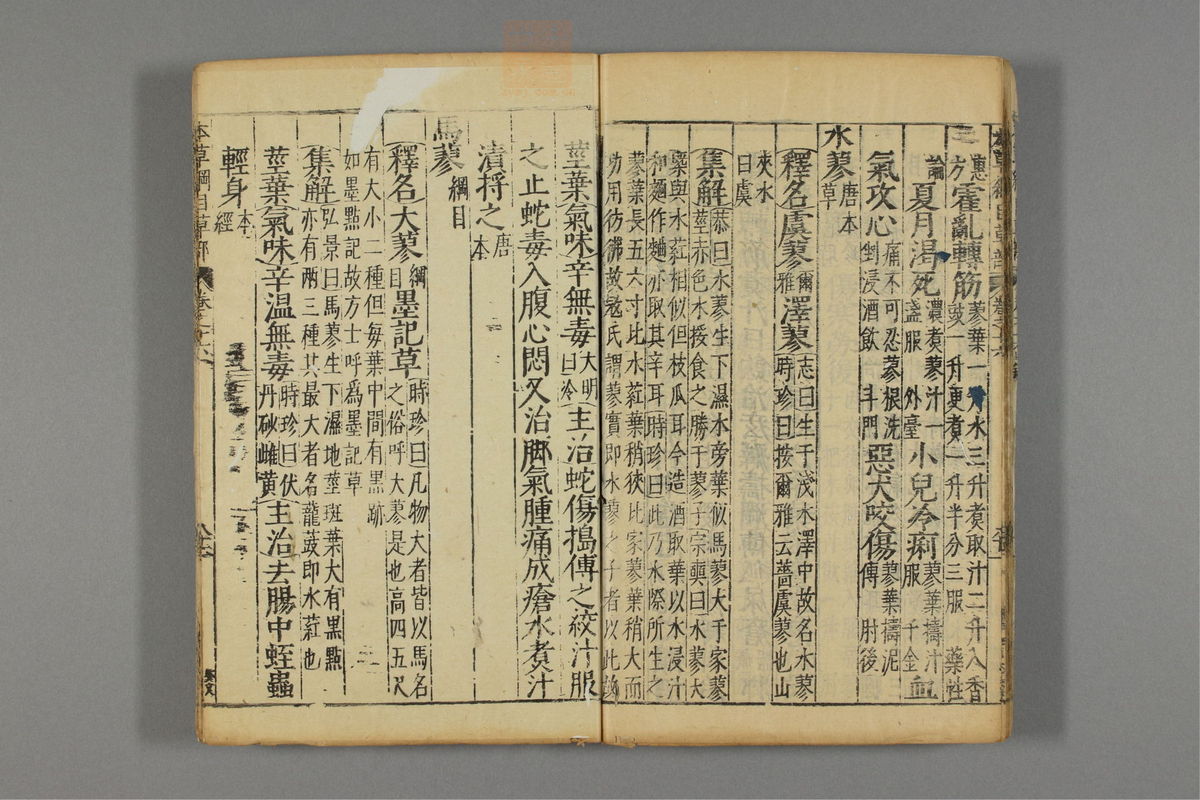 霍亂轉筋蓼葉一升水三升煮取汁二升入香
豉一升更煮一升半分三服 藥性
論夏月渴死濃煮蓼汁一盞服 外臺小兒冷痢蓼葉擣汁服 千金血
氣攻心痛不可忍蓼根洗剉浸酒飲 斗門惡犬咬傷蓼葉擣泥傅 肘後
水蓼唐本草
釋名虞蓼爾雅澤蓼志曰生于淺水澤中故名水蓼時珍曰按爾雅云薔虞蓼也山
夾水曰虞
集解恭曰水蓼生下濕水旁葉似馬蓼大于家蓼莖赤色水挼食之勝于蓼子宗奭曰水蓼大
槩與水葒相似但枝瓜耳今造酒取葉以水浸汁和麵作麯亦取其辛耳時珍曰此乃水際所生之
蓼葉長五六寸比水葒葉稍狹比家蓼葉稍大而功用彷彿故寇氏謂蓼實即水蓼之子者以此故
莖葉氣味辛無毒大明曰冷主治蛇傷搗傅之絞汁服
之止蛇毒入腹心悶又治腳氣腫痛成瘡水煮汁
漬捋之唐本
馬蓼綱目
釋名大蓼綱目墨記草時珍曰凡物大者皆以馬名之俗呼大蓼是也高四五尺
有大小二種但每葉中間有黑跡如墨點記故方士呼爲墨記草
集解弘景曰馬蓼生下濕地莖斑葉大有黑點亦有兩三種其最大者名蘢薣即水葒也
莖葉氣味辛溫無毒時珍曰伏丹砂雌黄主治去腸中蛭蟲
輕身本經
本草綱目草部